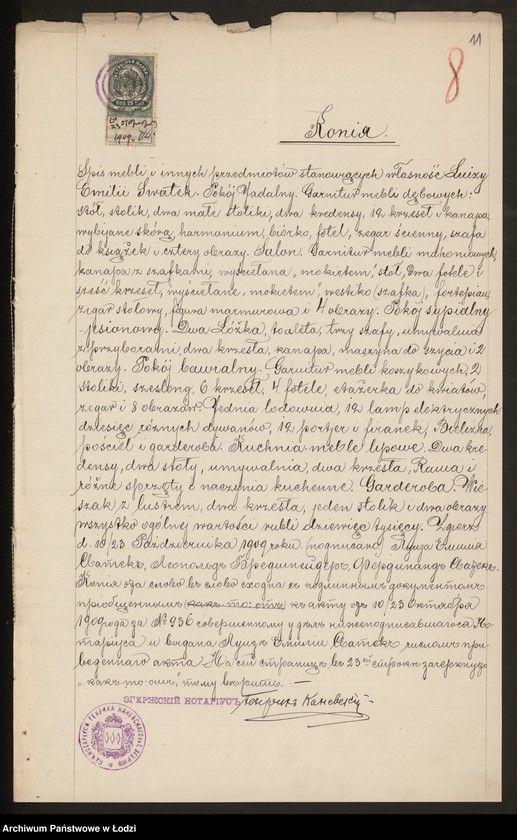 11
8
23 октября
1909
Kopia.
Spis mebli i innych przedmiotów stanowiących własność Luizy
Emilii Swatek. Pokój Jadalny. Garnitur mebli dębowych:
stół, stolik, dwa małe stoliki, dwa kredensy, 12 krzeseł i kanapa
wybijane skórą, harmonium, biórko, fotel, zegar ścienny, szafa
do książek i cztery obrazy. Salon. Garnitur mebli mahoniowych,
kanapa z szafkami, wyściełana "mokietem", stół, dwa fotele i
sześć krzeseł, wyściełane "mokietem", (szafka), fortepian,
zegar stołowy, figura marmurowa i 4 obrazy. Pokój sypialny
jesionowy. Dwa łóżka, toaleta, trzy szafy, umywalnia
z przyborami, dwa krzesła, kanapa, maszyna do szycia i 2
obrazy. Pokój bawialny. Garnitur mebli koszykowych, 2
stoliki, szeslong, 6 krzeseł, 4 fotele, etażerka do kwiatów,
zegar i 8 obrazów. Jedna lodownia, 12 lamp elektrycznych
dziesięć różnych dywanów, 12 portjer i firanek, Bielizna,
pościel i garderoba. Kuchnia meble lipowe. Dwa kre-
densy, dwa stoły, umywalnia, dwa krzesła, Rama i
różne sprzęty i naczynia kuchenne. Garderoba. Wie-
szak z lustrem, dwa krzesła, jeden stolik i dwa obrazy
wszystko ogólnej wartości rubli dziewięć tysięcy. Zgierz
d. 10/23 Października 1909 roku (podpisano) Луиза Эмилия
Сватекъ, Леопольдъ Фердинандъ Сватекъ.
Копія эта слово въ слово сходна съ подлиннымъ документомъ
пріобщеннымъ (какъ то: онъ) къ акту отъ 10/23 октября
1909 года за № 936 совершенному у меня нижеподписавшагося Но-
таріуса и выдана Луизѣ Эмиліи Сватекъ числомъ при-
веденнаго акта. На сей страницѣ въ 23ей строкѣ зачеркнуто
"какъ то: онъ", тому вѣрить. —
ЗГЕРЖСКІЙ НОТАРІУСЪ Генрихъ Каневскій
Archiwum Państwowe w Łodzi